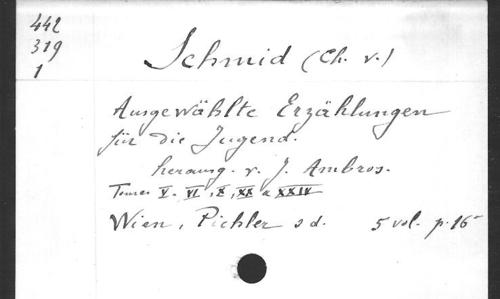 442
319
1
Schmid (Ch. v.)
Ausgewählte Erzählungen
für die Jugend.
herausg. v. J. Ambros.
Tomes V. VI, X, XX a XXIV
Wien, Pichler s d. 5 vol. p. 16°